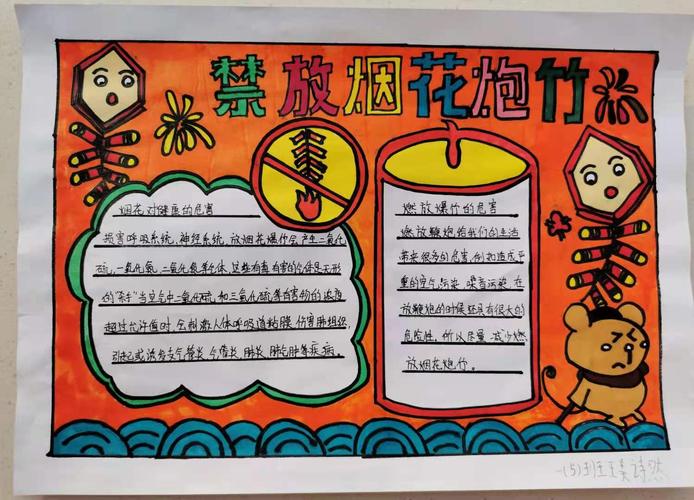 禁放烟花炮竹
烟花对健康的危害
损害呼吸系统、神经系统，放烟花爆竹会产生二氧化
硫，一氧化氮，二氧化氮等气体，这些有毒有害的气体是无形
的“杀手”当空气中二氧化硫和三氧化硫等有害物的浓度
超过允许值时，会刺激人体呼吸道粘膜，伤害肺组织，
引起或诱发支气管炎，气管炎，肺炎，肺气肿等疾病。
燃放爆竹的危害
燃放鞭炮给我们的生活
带来很多的危害，例如造成严
重的空气污染，噪音污染，在
放鞭炮的时候还有很大的
危险性，所以尽量减少燃
放烟花炮竹。
一(5)班王 诗然